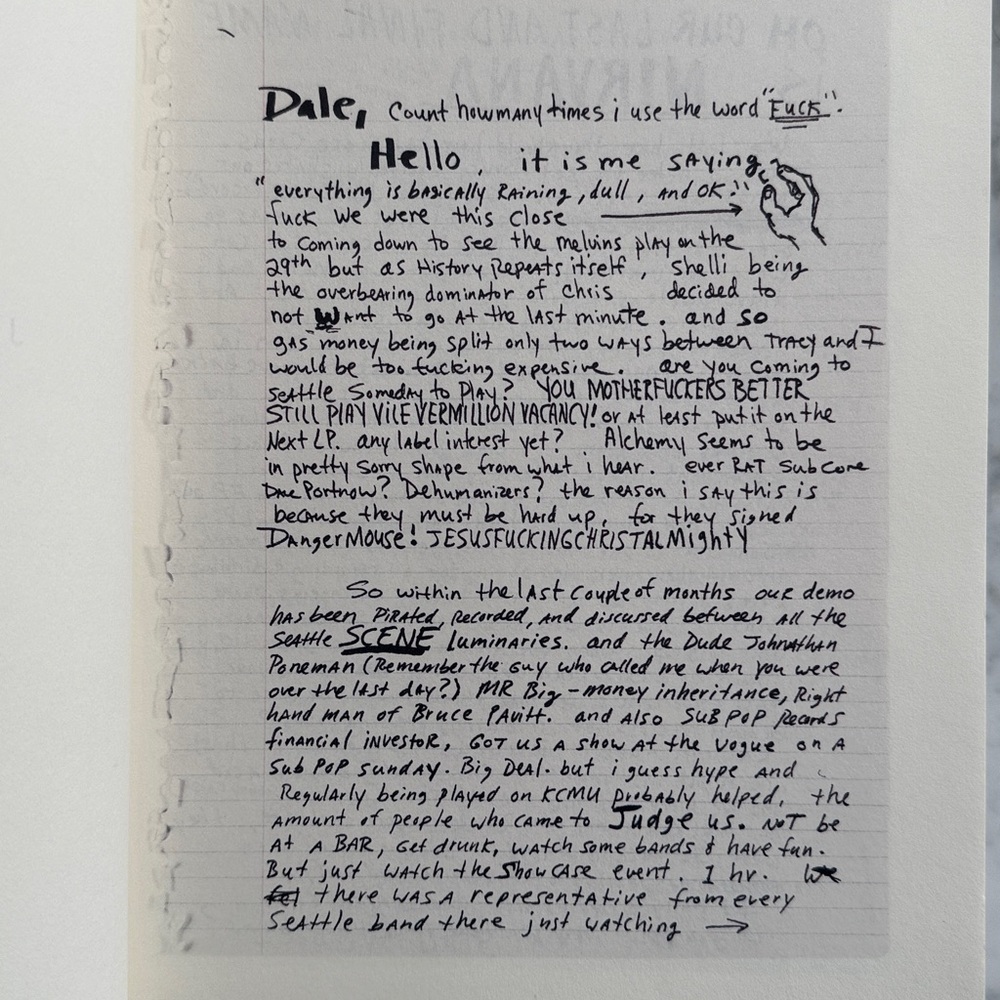 Dale, Count how many times i use the word "FUCK".
Hello, it is me saying
"everything is basically Raining, dull, and OK."
fuck we were this close
to coming down to see the melvins play on the
29th but as History Repeats itself, Shelli being
the overbearing dominator of Chris decided to
not want to go at the last minute. and so
gas money being split only two ways between Tracy and I
would be too fucking expensive. are you coming to
seattle Someday to Play? YOU MOTHERFUCKERS BETTER
STILL PLAY VILE VERMILLION VACANCY! or at least put it on the
Next LP. any label interest yet? Alchemy seems to be
in pretty sorry shape from what i hear. ever RAT SubCore
Dehumanizers? the reason i say this is
because they must be hard up, for they signed
DangerMouse! JESUSFUCKINGCHRISTALMighty
So within the last couple of months our demo
has been Pirated, recorded, and discussed between all the
Seattle SCENE luminaries. and the Dude Johnathan
Poneman (Remember the guy who called me when you were
over the last day?) MR Big-money inheritance, Right
hand man of Bruce Pavitt. and also SUB POP Records
financial investor, GOT us a show at the vogue on a
Sub POP sunday. Big Deal. but i guess hype and
Regularly being played on KCMU probably helped, the
amount of people who came to Judge us. NOT be
At A BAR, Get drunk, watch some bands & have fun.
But just watch the showcase event. 1 hr. we
there was a representative from every
Seattle band there just watching →